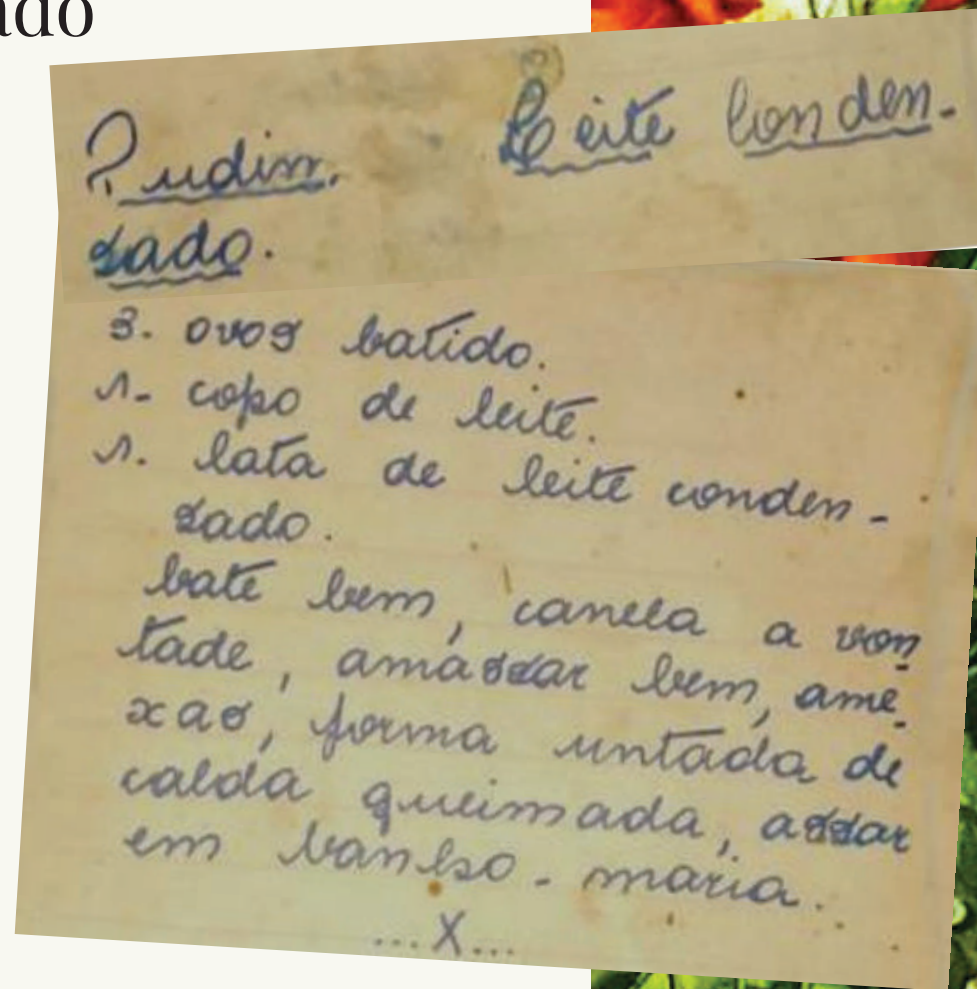 ado
Pudim. Leite Conden-
sado.
3. ovos batido.
1- copo de leite.
1. lata de leite conden-
sado.
bate bem, canela a von
tade, amassar bem, ame-
xas, forma untada de
calda queimada, assar
em banho-maria.
...X...